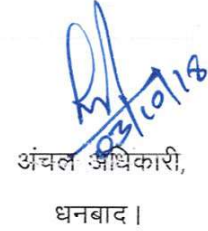 03/10/18
अंचल अधिकारी,
धनबाद।